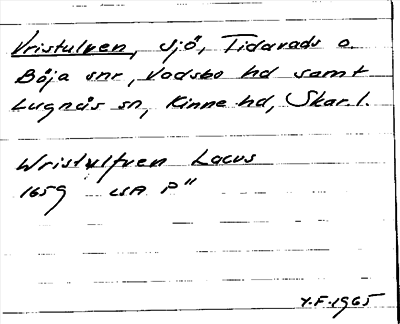 Vristulven, sjö, Tidavads o.
Böja snr, Vadsbo hd samt
Lugnås sn, Kinne hd, Skar.l.
Wristulfven Lacus
1659 LSA P"
Y.F. 1965